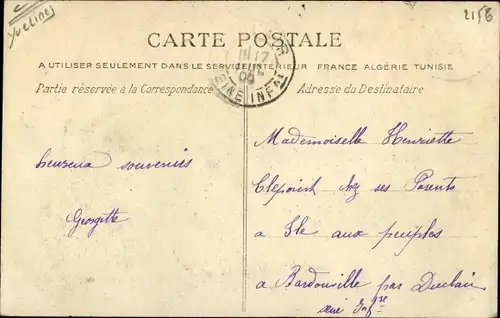 Yvelines
2158
CARTE POSTALE
A UTILISER SEULEMENT DANS LE SERVICE INTÉRIEUR FRANCE ALGÉRIE TUNISIE
Partie réservée à la Correspondance
Adresse du Destinataire
heureux souvenirs
Georgette
Mademoiselle Henriette
chez ses Parents
a Ile aux peuples
a Bardouville par Duclair
Infre